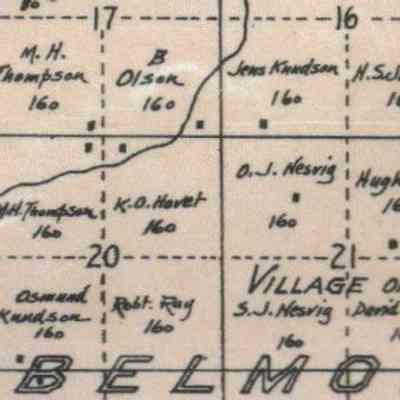 80
17
16
M. H.
Thompson
160
B
Olson
160
Jens Knudson
160
O. J. Nesvig
160
M.H. Thompson
160
K.O. Hovet
160
20
21
VILLAGE
Osmund
Knudson
160
Robt. Ray
160
S. J. Nesvig
160
David
BELMO